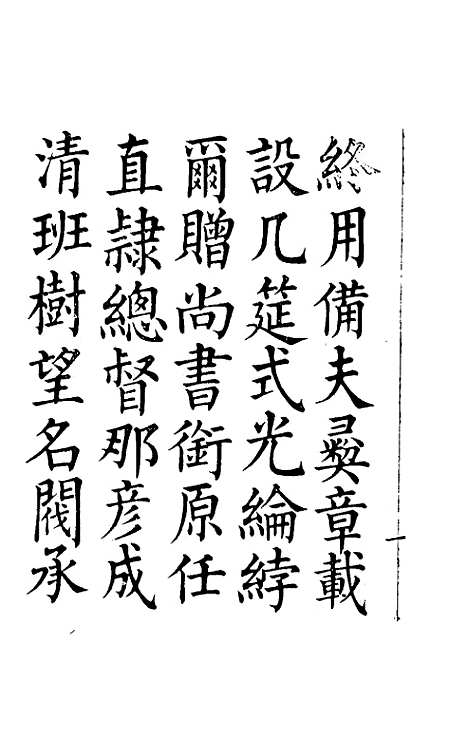 終用備夫彝章載
設几筵式光綸綍
爾贈尚書銜原任
直隷總督那彦成
清班樹望名閥承
一